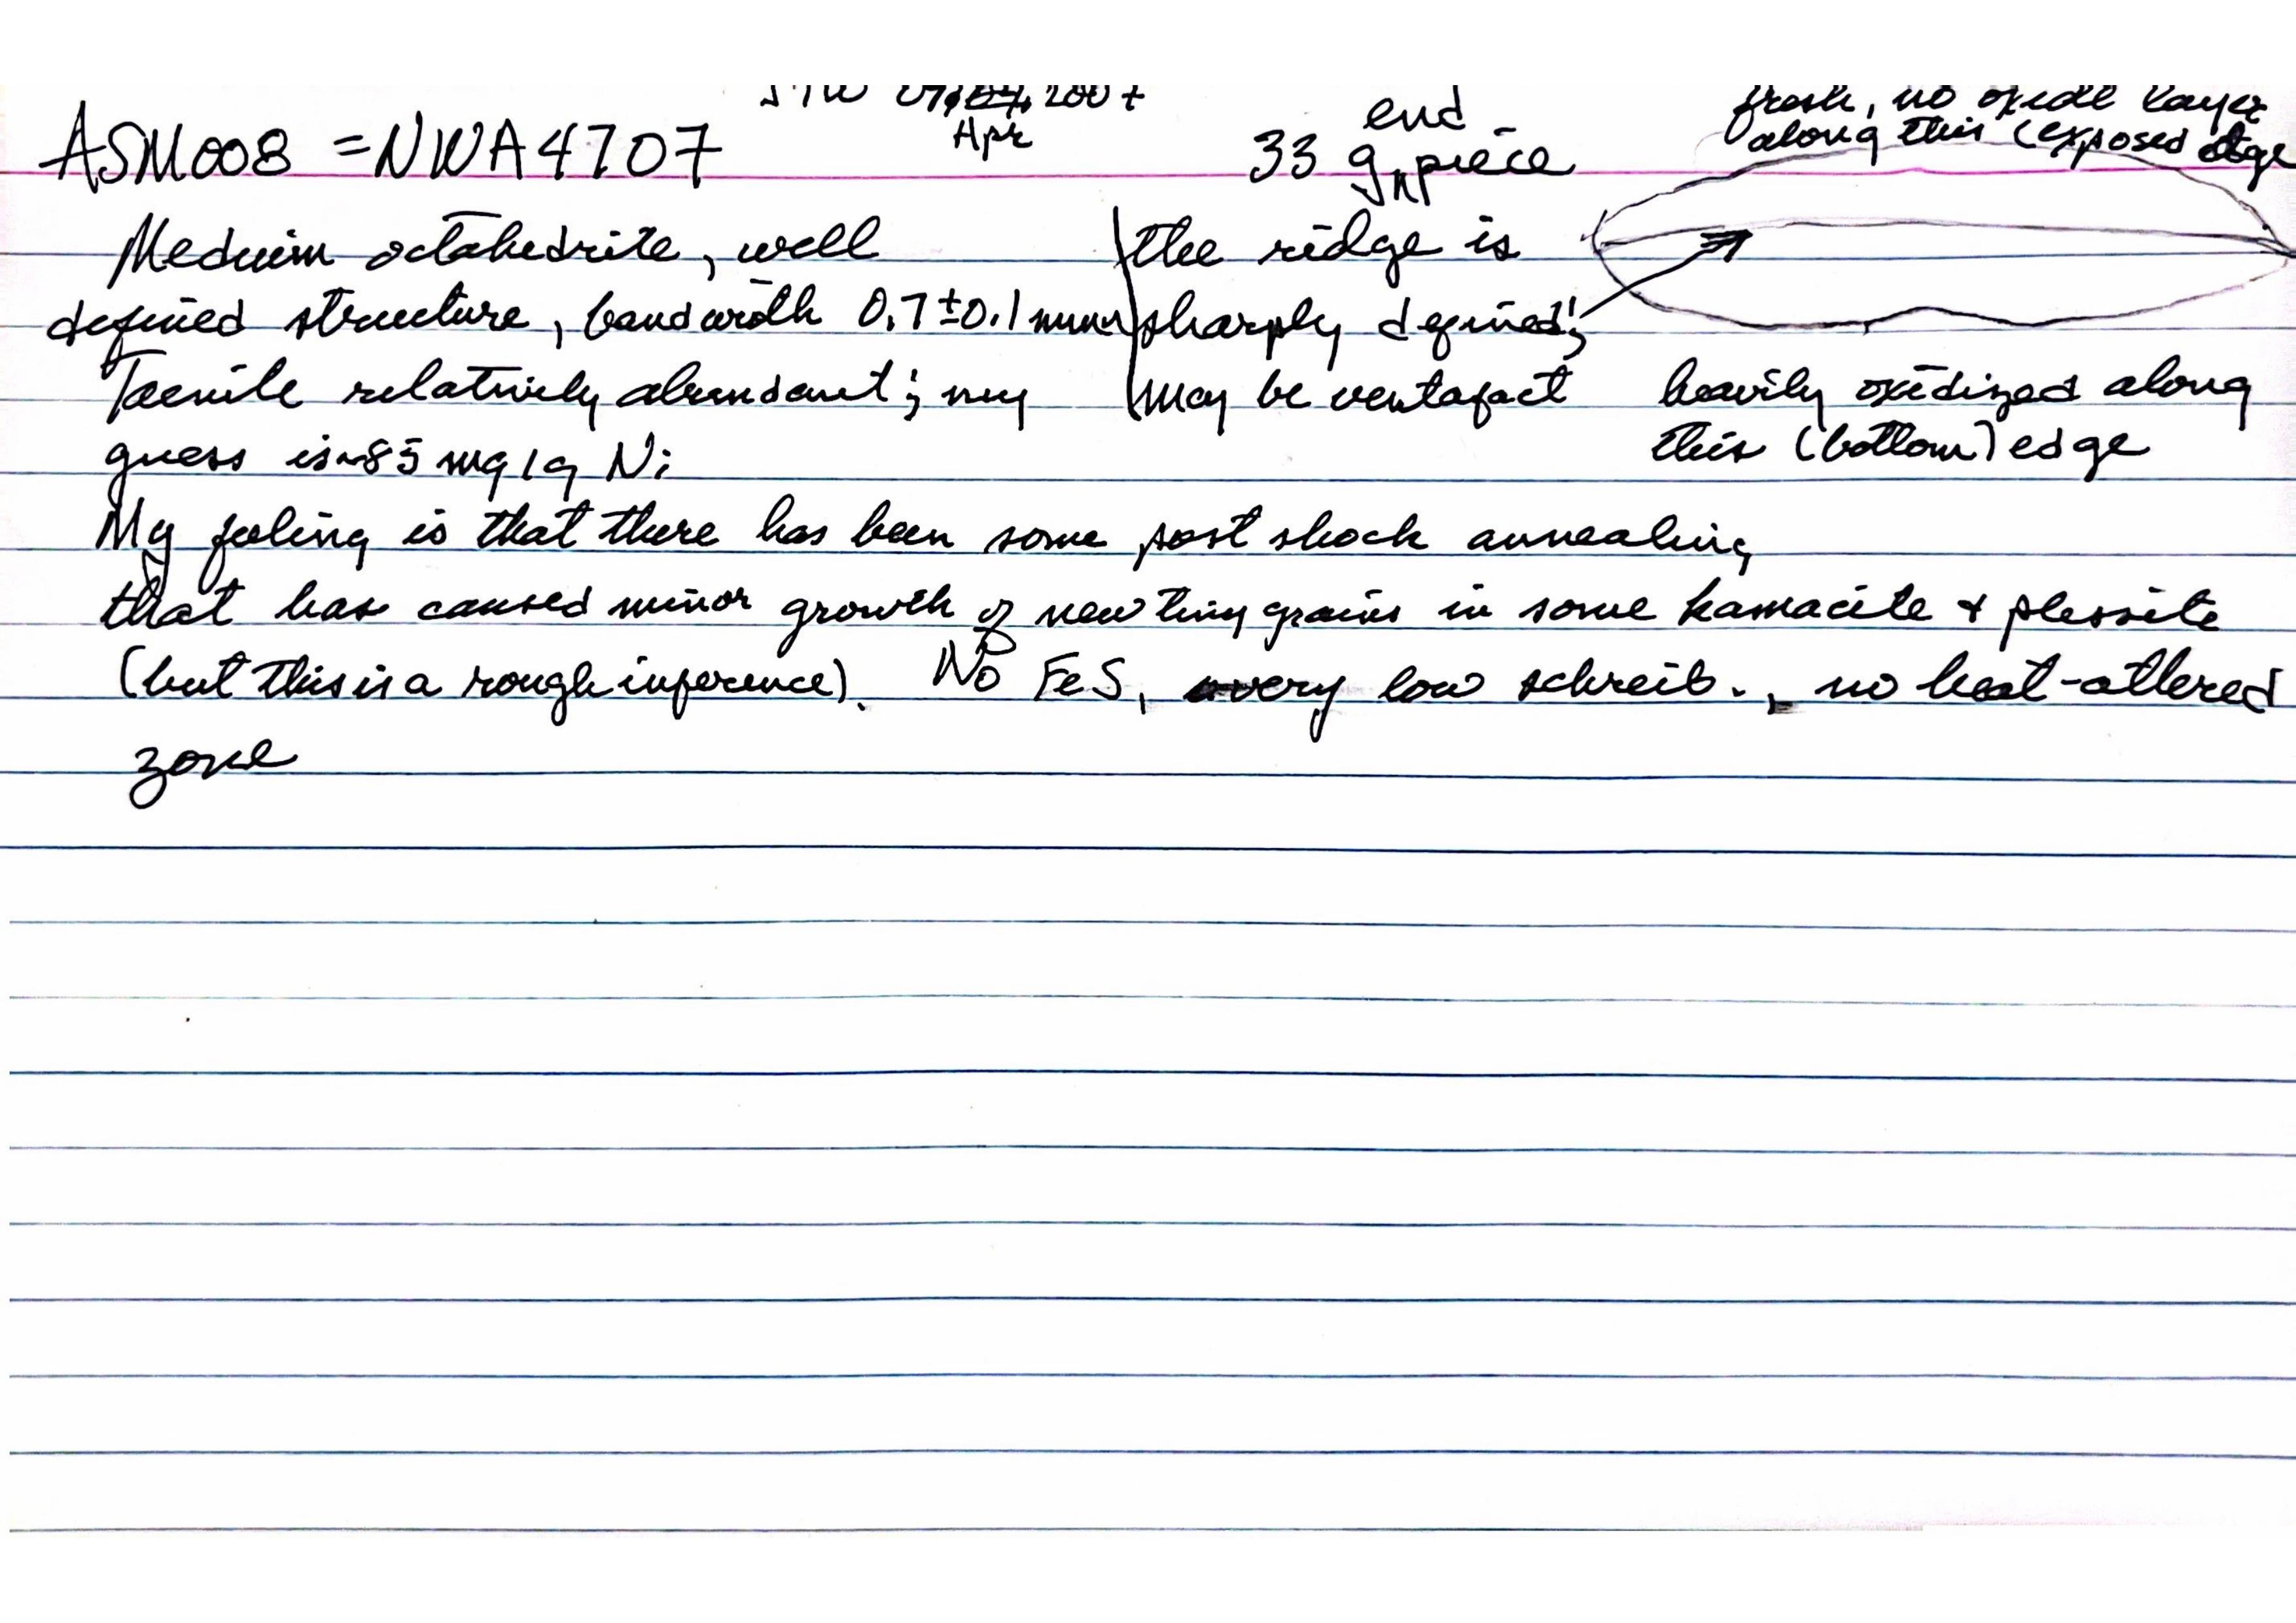 JTW 07 2007
Apr
ASM008 = NWA4707
33 g end piece
fresh, no oxide layer
along this (exposed edge
Medium octahedrite, well
defined structure, bandwidth 0.7±0.1 mm
Taenite relatively abundant; my
guess is ~85 mg/g Ni
the ridge is
sharply defined;
may be ventafact
heavily oxidized along
this (bottom) edge
My feeling is that there has been some post shock annealing
that has caused minor growth of new tiny grains in some kamacite + plessite
(but this is a rough inference). No FeS, very low schreib., no heat-altered
zone